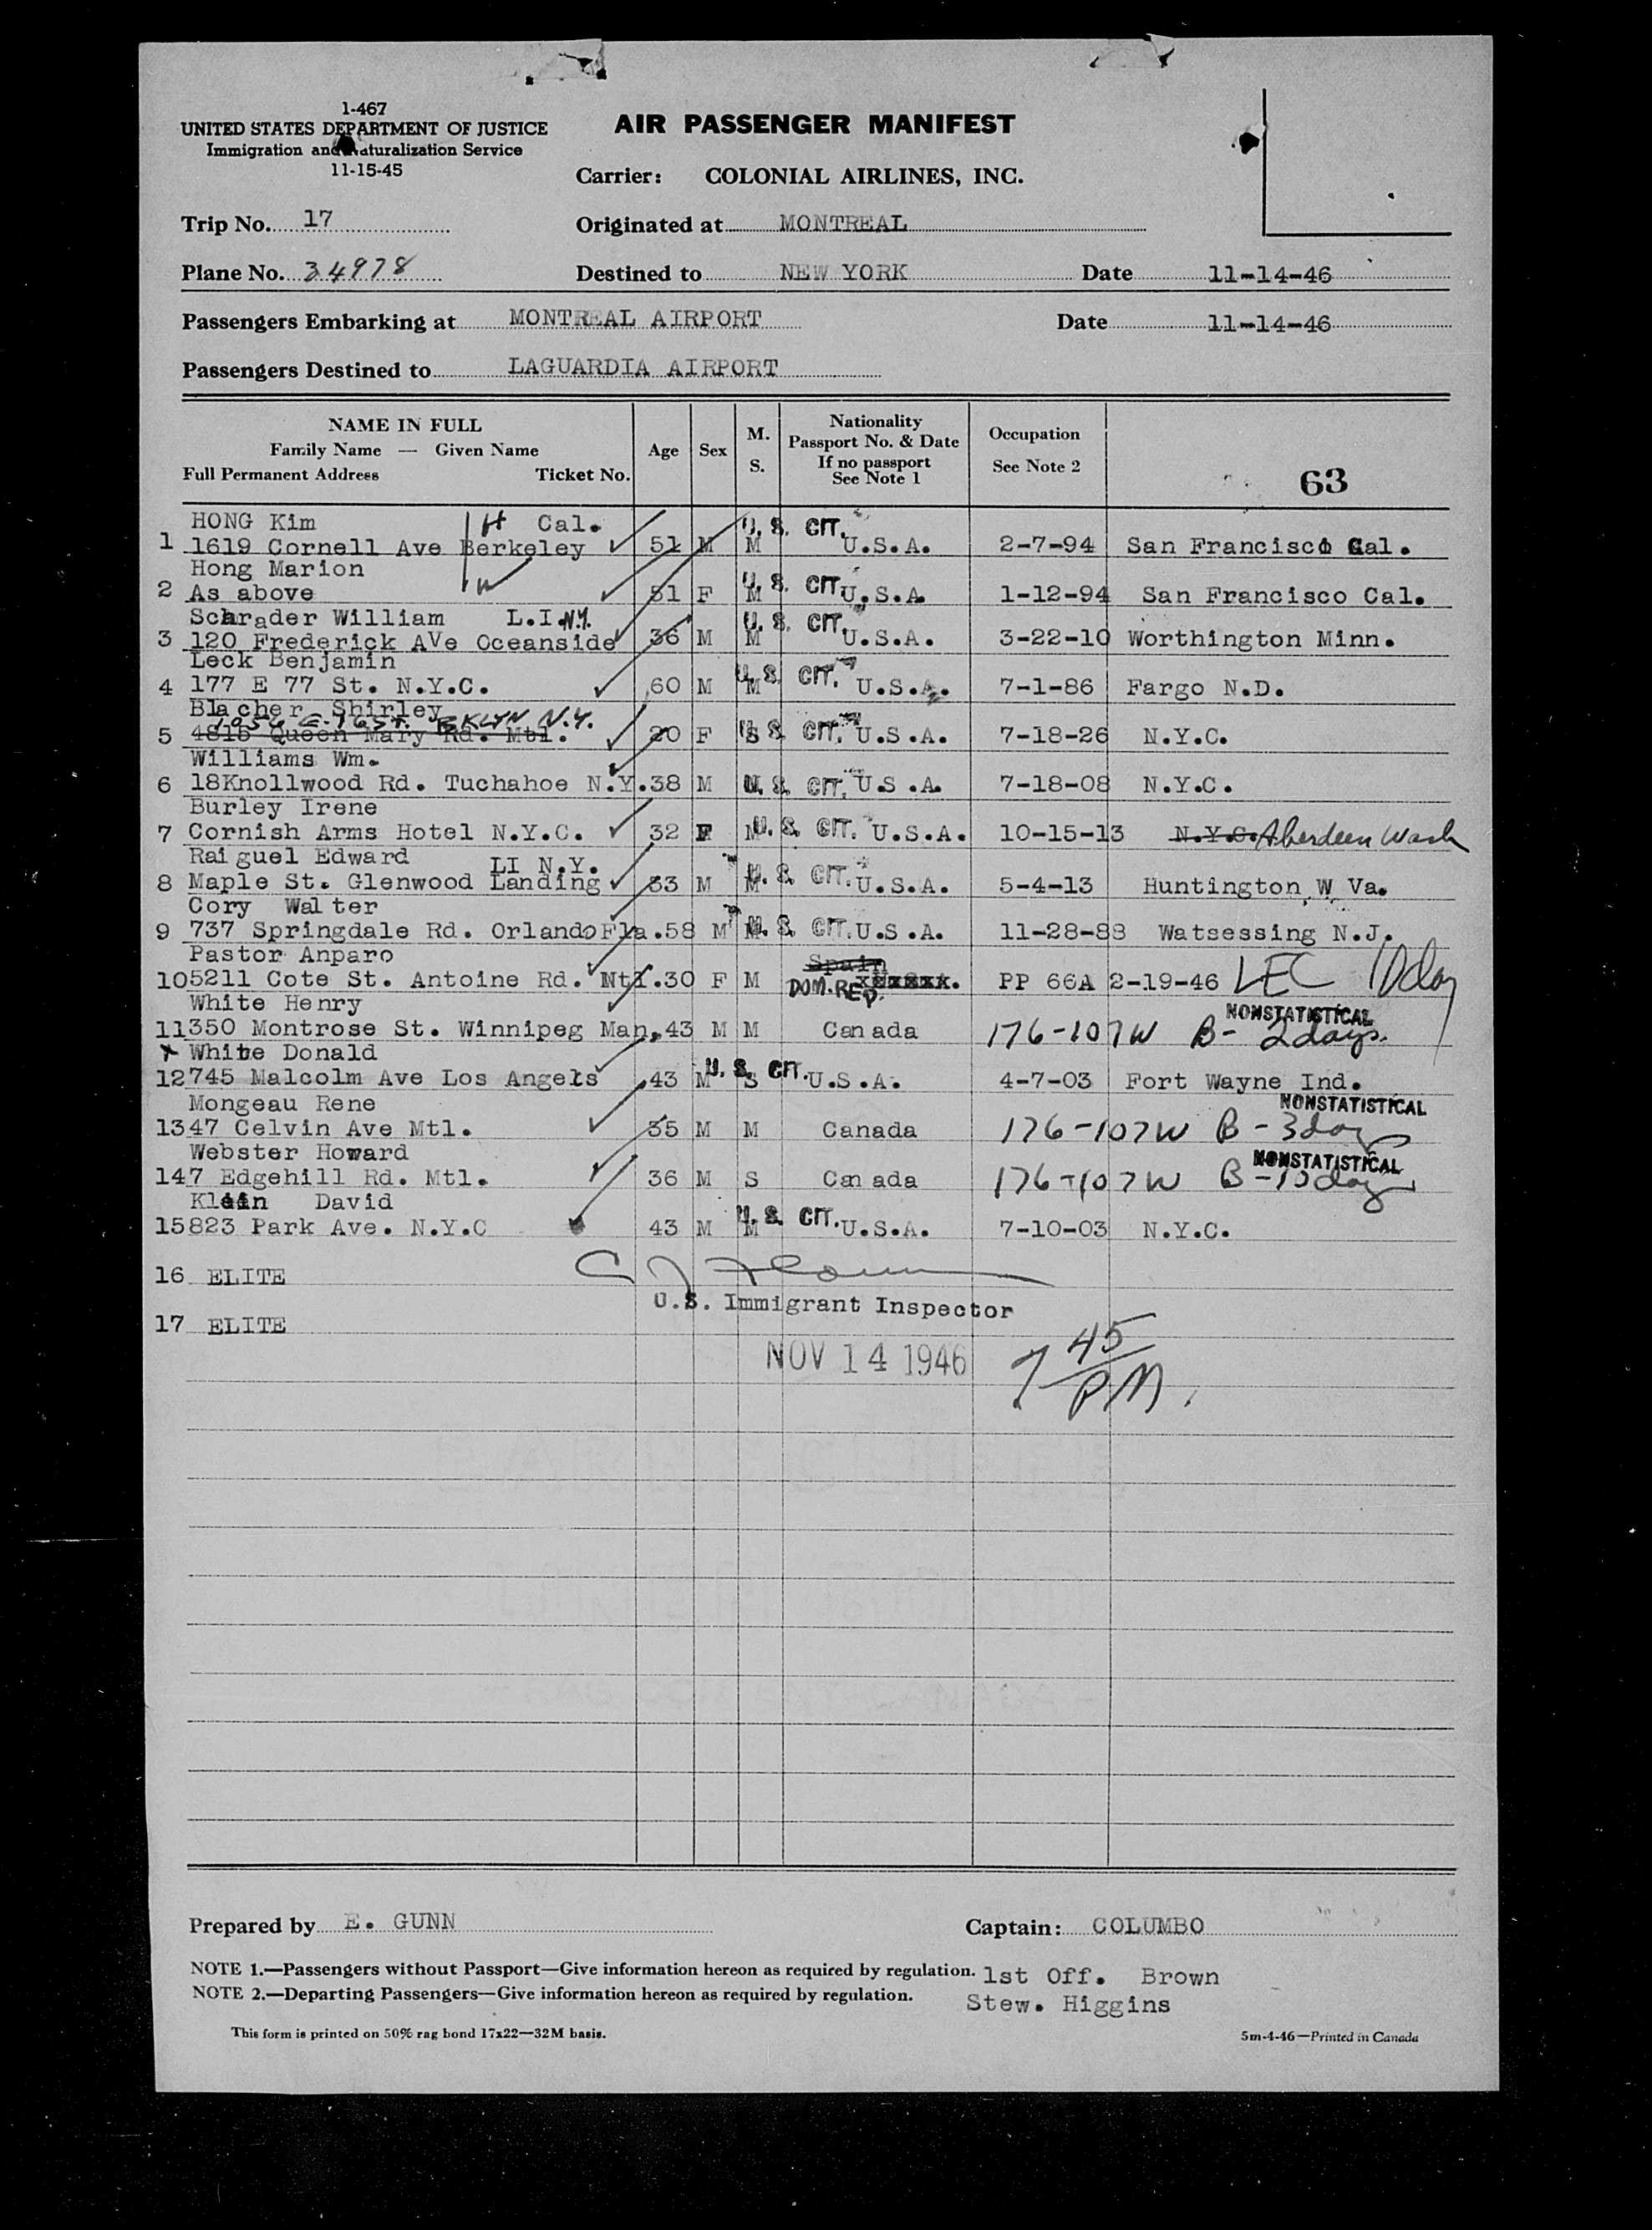 1-467
UNITED STATES DEPARTMENT OF JUSTICE
Immigration and Naturalization Service
11-15-45
AIR PASSENGER MANIFEST
Carrier: COLONIAL AIRLINES, INC.
Trip No. 17 Originated at MONTREAL
Plane No. 34978 Destined to NEW YORK Date 11-14-46
Passengers Embarking at MONTREAL AIRPORT Date 11-14-46
Passengers Destined to LAGUARDIA AIRPORT
NAME IN FULL
Family Name — Given Name
Full Permanent Address Ticket No.
Age Sex M. S.
Nationality
Passport No. & Date
If no passport
See Note 1
Occupation
See Note 2
63
HONG Kim H Cal. U. S. CIT.
1 1619 Cornell Ave Berkeley 51 M M U.S.A. 2-7-94 San Francisco Cal.
Hong Marion W
2 As above 51 F M U. S. CIT. U.S.A 1-12-94 San Francisco Cal.
Schrader William L.I.N.Y. U. S. CIT.
3 120 Frederick AVe Oceanside 36 M M U.S.A. 3-22-10 Worthington Minn.
Leck Benjamin
4 177 E 77 St. N.Y.C. 60 M M U. S. CIT. U.S.A. 7-1-86 Fargo N.D.
Blacher Shirley
1056 E. 16 St. BKLYN N.Y.
5 4815 Queen Mary Rd. Mtl. 20 F S U. S. CIT. U.S.A. 7-18-26 N.Y.C.
Williams Wm.
6 18Knollwood Rd. Tuchahoe N.Y.38 M U. S. CIT. U.S.A. 7-18-08 N.Y.C.
Burley Irene
7 Cornish Arms Hotel N.Y.C. 32 F M U. S. CIT. U.S.A. 10-15-13 N.Y.C. Aberdeen Wash
Raiguel Edward LI N.Y.
8 Maple St. Glenwood Landing 33 M M U. S. CIT. U.S.A. 5-4-13 Huntington W Va.
Cory Walter
9 737 Springdale Rd. Orlando Fla.58 M M U. S. CIT. U.S.A. 11-28-88 Watsessing N.J.
Pastor Anparo Spain
10 5211 Cote St. Antoine Rd. Mtl.30 F M DOM. REP. PP 66A 2-19-46 LEC 10 day
White Henry NONSTATISTICAL
11 350 Montrose St. Winnipeg Man.43 M M Canada 176-107W B- 2 days.
x White Donald
12 745 Malcolm Ave Los Angels 43 M S U. S. CIT. U.S.A. 4-7-03 Fort Wayne Ind.
Mongeau Rene NONSTATISTICAL
13 47 Celvin Ave Mtl. 35 M M Canada 176-107W B - 3 days
Webster Howard NONSTATISTICAL
14 7 Edgehill Rd. Mtl. 36 M S Canada 176-107W B - 10 days
Klein David
15 823 Park Ave. N.Y.C 43 M M U. S. CIT. U.S.A. 7-10-03 N.Y.C.
16 ELITE
U.S. Immigrant Inspector
17 ELITE
NOV 14 1946 7 45 PM.
Prepared by E. GUNN Captain: COLUMBO
NOTE 1.—Passengers without Passport—Give information hereon as required by regulation. 1st Off. Brown
NOTE 2.—Departing Passengers—Give information hereon as required by regulation. Stew. Higgins
This form is printed on 50% rag bond 17x22—32M basis. 5m-4-46—Printed in Canada